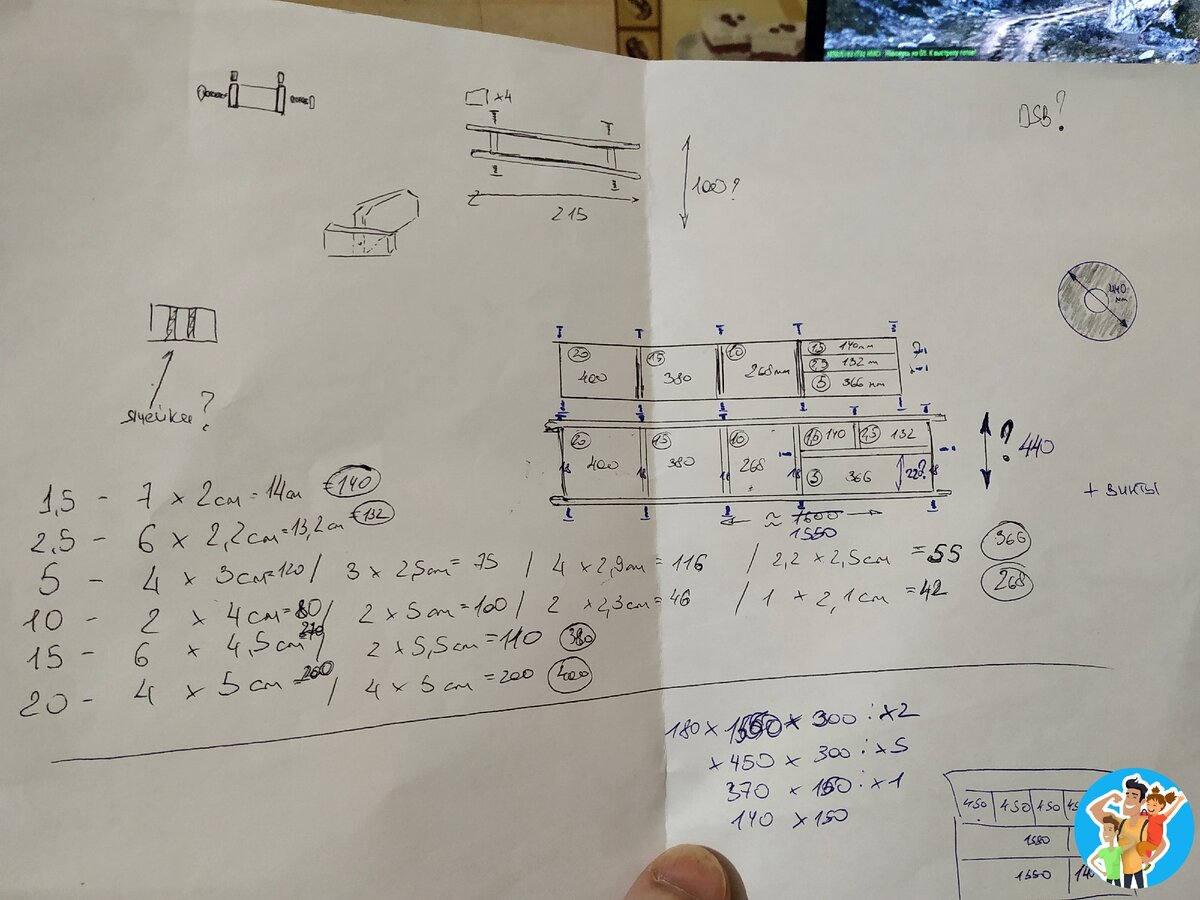 К выстрелу готов!
DSB?
x4
100?
215
440 мм
ячейки?
20 15 10 1,5 140мм
400 380 268мм 2,5 132 м
5 366 мм
20 15 10 1,5 140 2,5 132
400 380 268 5 366
18 18 18 18 18
? 440
+ винты
≈ 1600
1550
1,5 - 7 x 2см = 14см =140
2,5 - 6 x 2,2см = 13,2см =132
5 - 4 x 3см=120 / 3 x 2,5см = 75 / 4 x 2,9см = 116 / 2,2 x 2,5см = 55 366
10 - 2 x 4см=80 / 2 x 5см =100 / 2 x 2,3см = 46 / 1 x 2,1см = 42 268
15 - 6 x 4,5см 270 / 2 x 5,5см =110 380
20 - 4 x 5см = 200 / 4 x 5см =200 400
180 x 1550 x 300 : x2
x 450 x 300 : x5
370 x 150 : x1
140 x 150
450 450 450
1550
1550